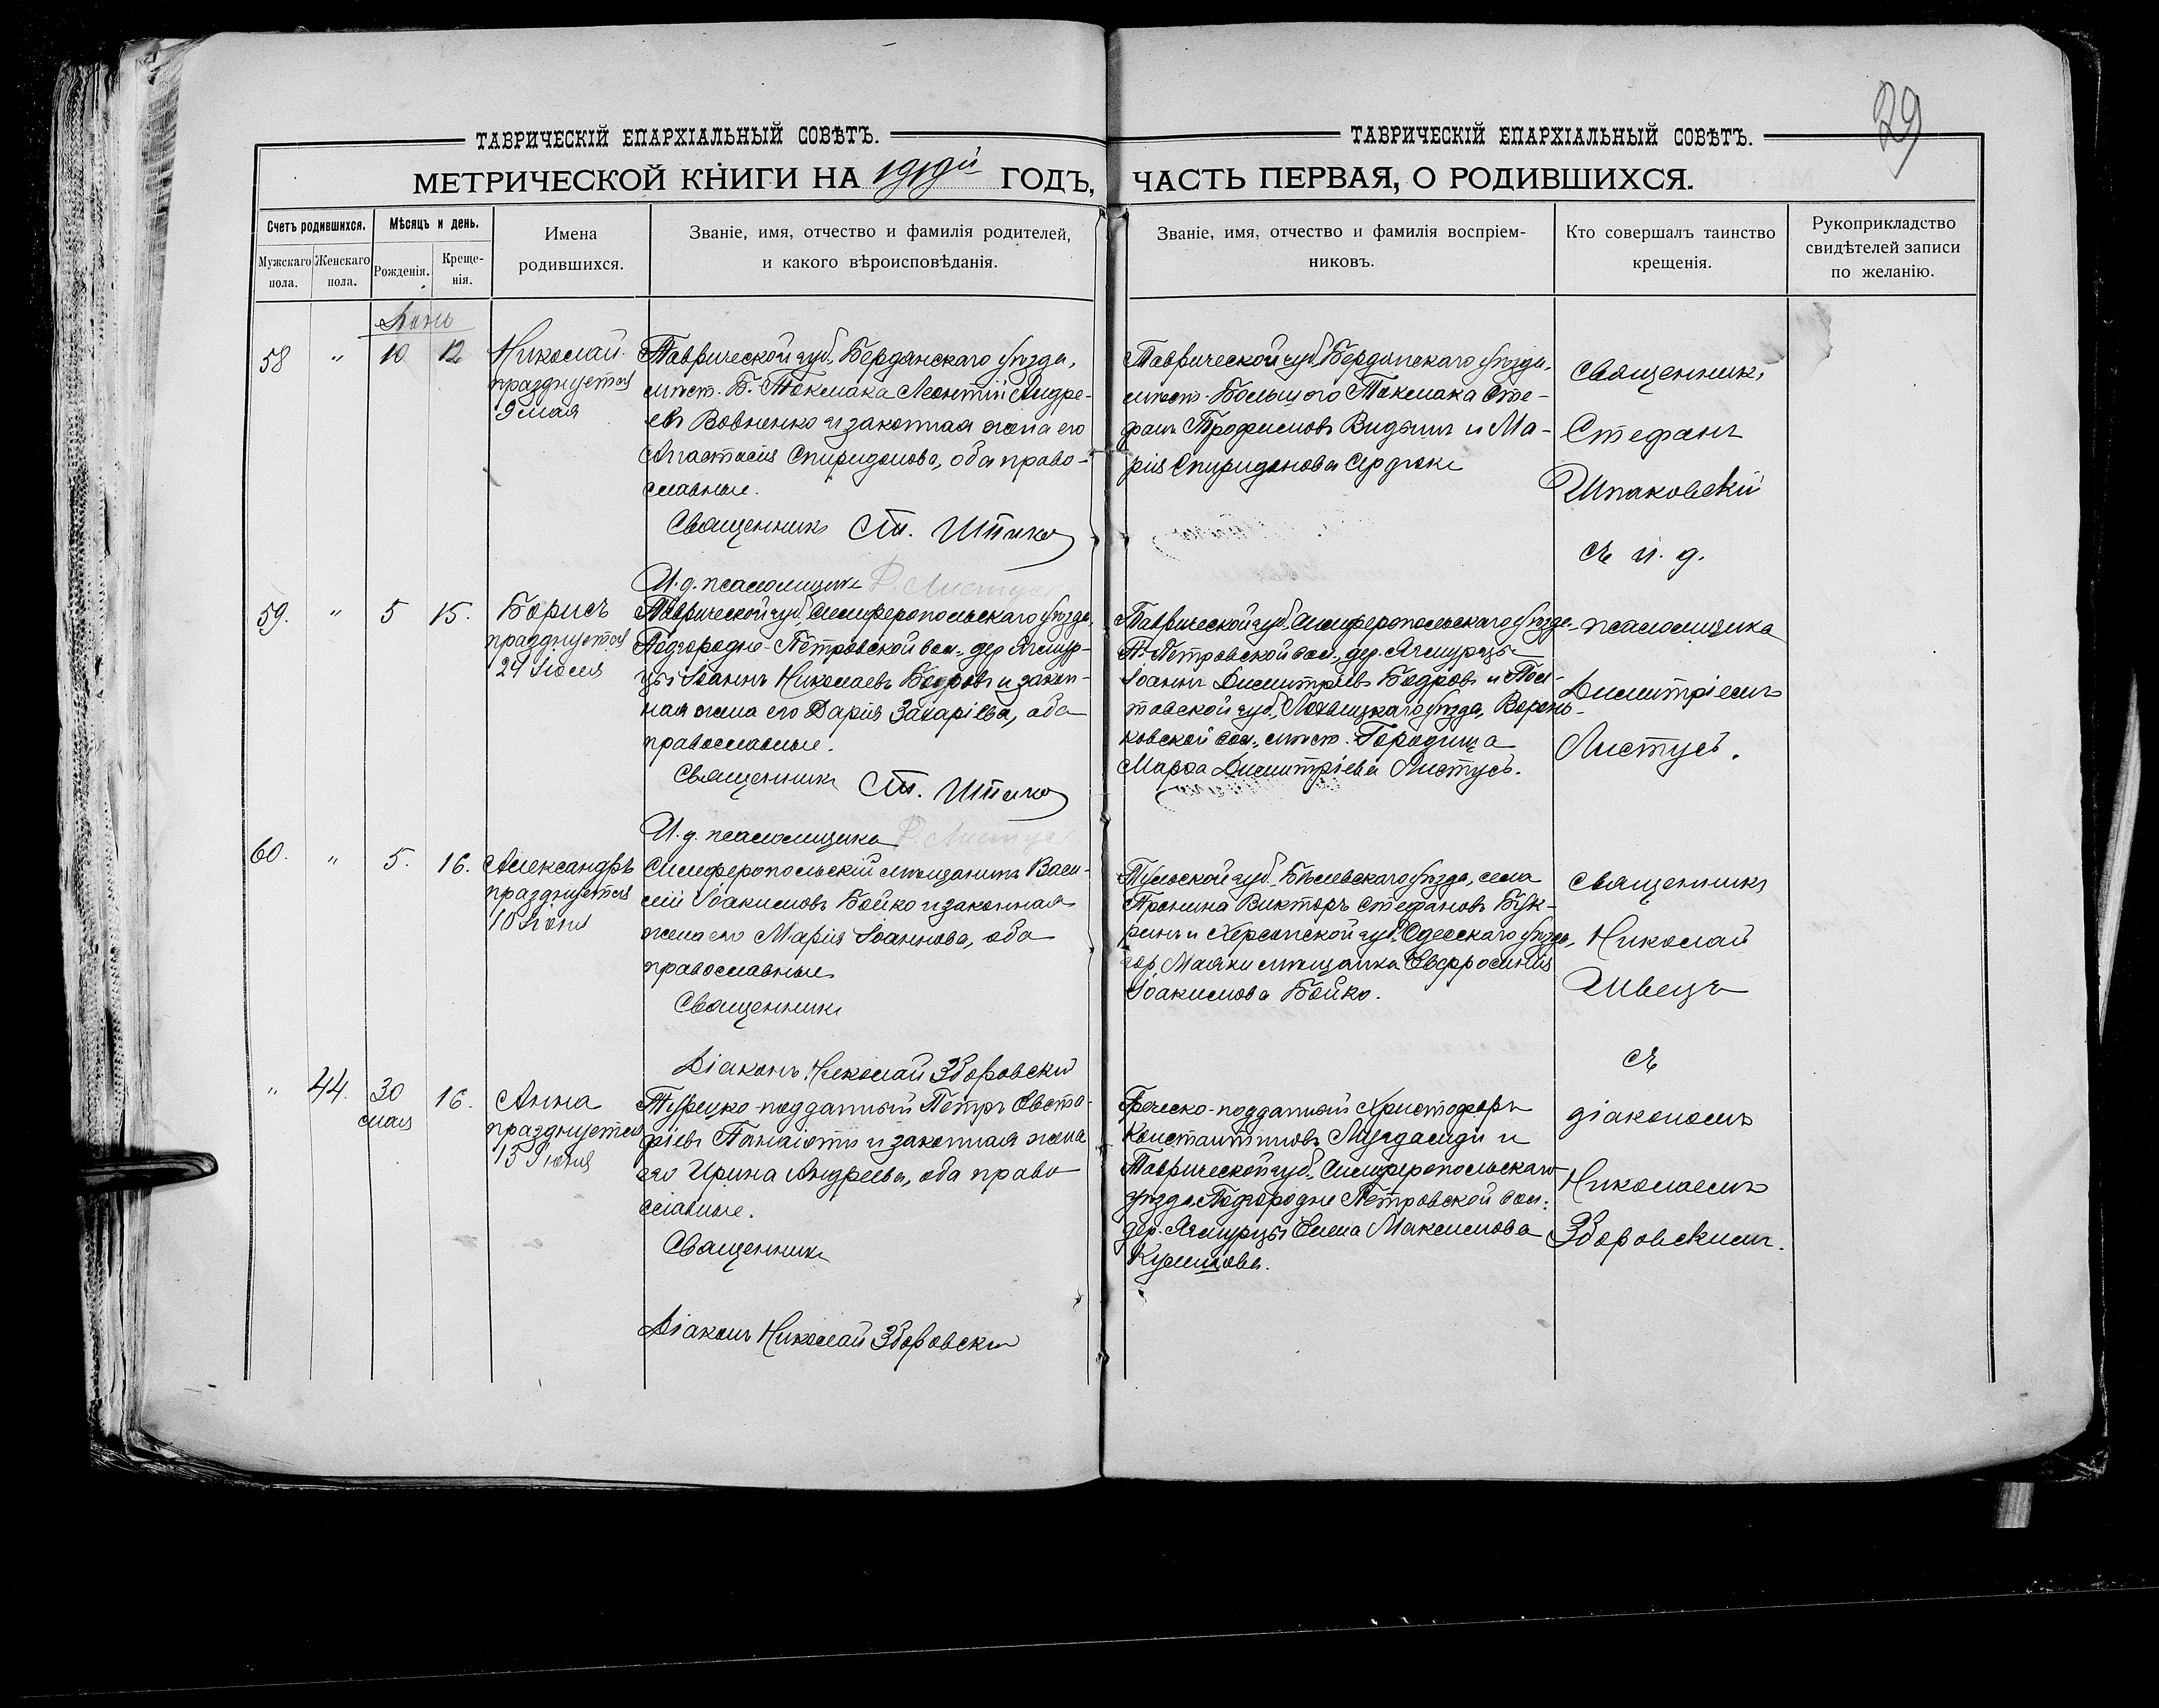 ТАВРИЧЕСКІЙ ЕПАРХІАЛЬНЫЙ СОВѢТЪ.
МЕТРИЧЕСКОЙ КНИГИ НА ГОДЪ,
Счетъ родившихся.
Мужскаго пола.
Женскаго пола.
Мѣсяцъ и день.
Рожденія.
Креще-
нія.
Имена
родившихся.
Званіе, имя, отчество и фамилія родителей,
и какого вѣроисповѣданія.
58
"
10
12
Николай
празднуется
9 мая
Таврической губ. Бердянскаго уѣзда,
мѣст. Б. Токмака Леонтій Андре-
евъ Вовненко и законная жена его
Анастасія Спиридонова, оба право-
славные.
Священникъ Ст. Шпако
И. д. псаломщика Д. Листусъ
59.
"
5
15.
Борисъ
празднуется
24 Іюля
Таврической губ., Симферопольскаго уѣзда,
Подгородне-Петровской вол., дер. Ягмур-
цы Іоаннъ Николаевъ Бодровъ и закон-
ная жена его Дарія Захаріева, оба
православные.
Священникъ Ст. Шпако
И. д. псаломщика Д. Листусъ
60.
"
5.
16.
Александръ
празднуется
10 Іюня
Симферопольскій мѣщанинъ Васи-
лій Іоакимовъ Бойко и законная
жена его Марія Іоаннова, оба
православные
Священникъ
Діаконъ Николай Здоровскій
"
44.
30
мая
16.
Анна
празднуется
13 Іюня
Турецко-подданный Петръ Евста-
фіевъ Панаіоти и законная жена
его Ирина Андреева, оба право
славные.
Священникъ
Діаконъ Николай Здоровскій
29
ТАВРИЧЕСКІЙ ЕПАРХІАЛЬНЫЙ СОВѢТЪ.
ЧАСТЬ ПЕРВАЯ, О РОДИВШИХСЯ.
Званіе, имя, отчество и фамилія воспріем-
никовъ.
Кто совершалъ таинство
крещенія.
Рукоприкладство
свидѣтелей записи
по желанію.
Таврической губ. Бердянскаго уѣзда,
мѣст. Большого Токмака Сте-
фанъ Трофимовъ и Ма-
рія Спиридонова Сердюк
Таврической губ., Симферопольскаго уѣзда
П-Петровской вол., дер. Ягмурцы
Іоаннъ Димитріевъ Бодровъ и Пол-
тавской губ., Лохвицкаго уѣзда, Воронь-
ковской вол., мѣст. Городища
Марѳа Димитріева Листусъ.
Тульской губ. Бѣлевскаго уѣзда, села
Пронина Викторъ Стефановъ Бук-
ринъ и Херсонской губ. Одесскаго уѣзда,
гор. Маяки мѣщанка Евфросинія
Іоакимова Бойко.
Греческо-подданный Христофоръ
Константиновъ и
Таврической губ., Симферопольскаго
уѣзда Подгородне Петровской вол.
дер. Ягмурцы Елена Максимова
Священникъ
Стефанъ
Шпаковскій
съ и. д.
псаломщика
Димитріемъ
Листусъ.
Священникъ
Николай
Швецъ
съ
діакономъ
Николаемъ
Здоровскимъ.